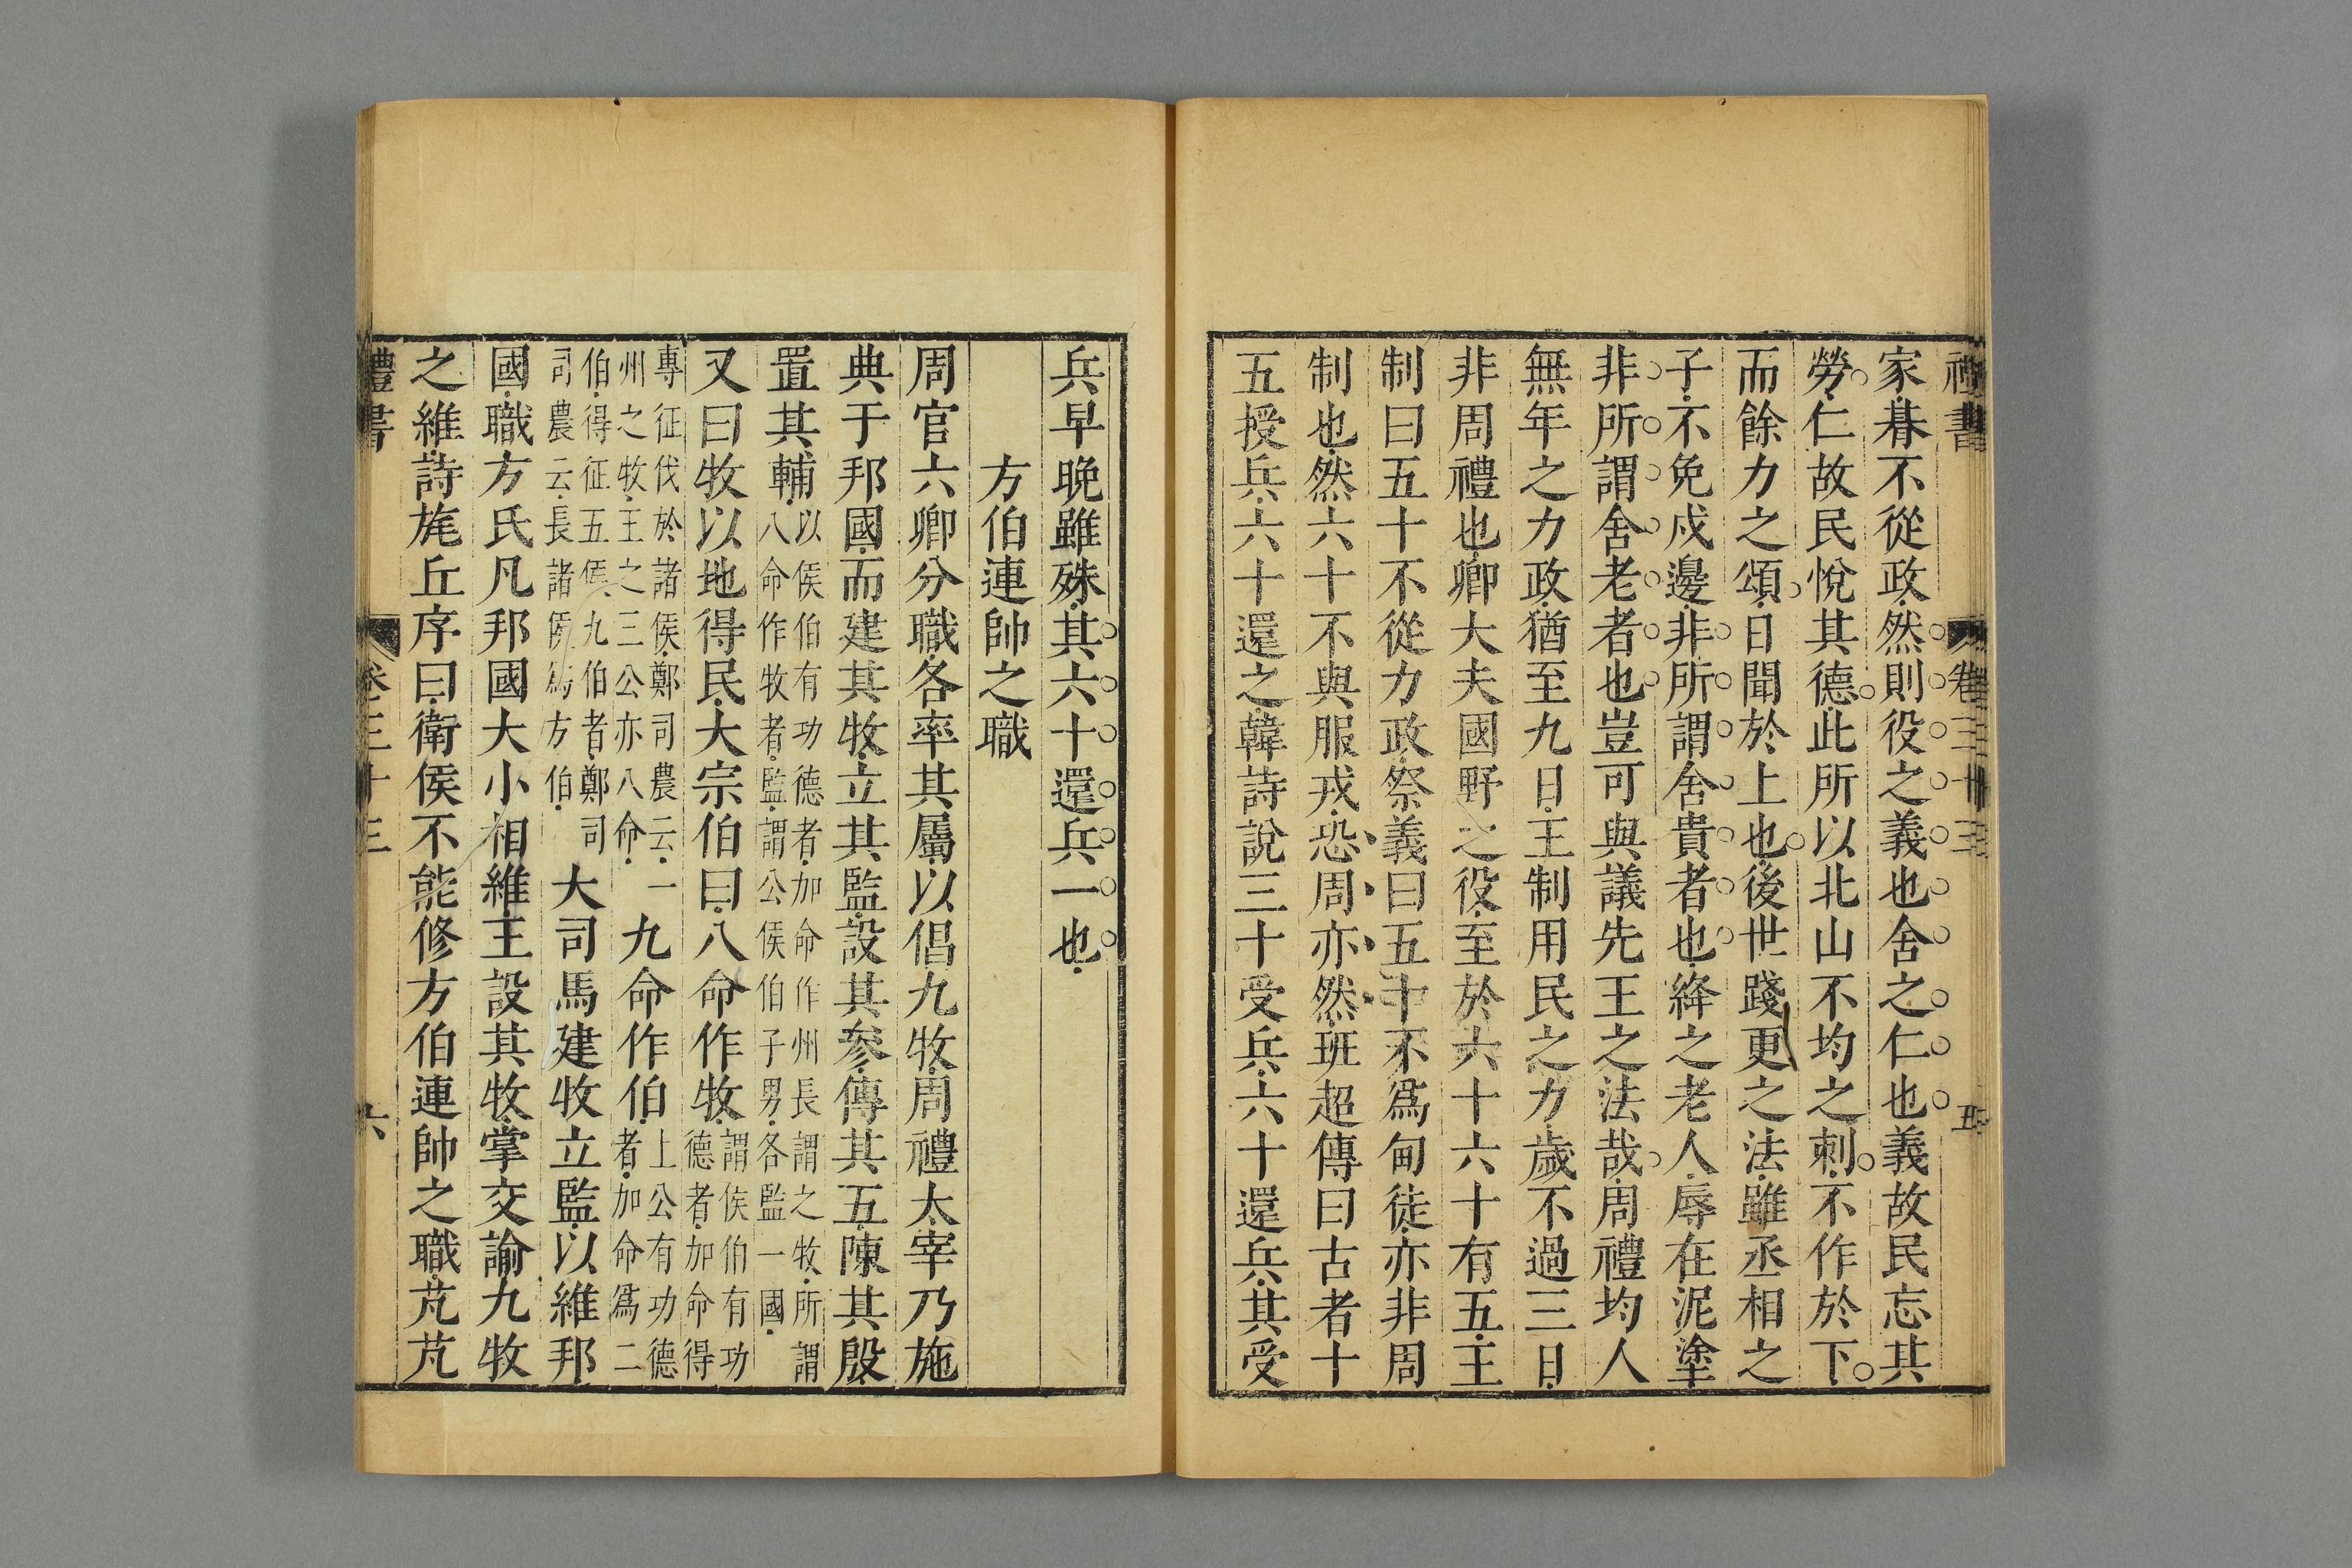 禮書 卷三十三 五
家朞不從政然則役之義也舍之仁也義故民忘其
勞仁故民悅其德此所以北山不均之刺不作於下
而餘力之頌日聞於上也後世踐更之法雖丞相之
子不免戍邊非所謂舍貴者也絳之老人辱在泥塗
非所謂舍老者也豈可與議先王之法哉周禮均人
無年之力政猶至九日王制用民之力歲不過三日
非周禮也鄉大夫國野之役至於六十六十有五王
制曰五十不從力政祭義曰五十不爲甸徒亦非周
制也然六十不與服戎恐周亦然班超傳曰古者十
五授兵六十還之韓詩說三十受兵六十還兵其受
兵早晚雖殊其六十還兵一也
方伯連帥之職
周官六卿分職各率其屬以倡九牧周禮太宰乃施
典于邦國而建其牧立其監設其參傅其五陳其殷
置其輔以侯伯有功德者加命作州長謂之牧所謂八命作牧者監謂公侯伯子男各監一國
又曰牧以地得民大宗伯曰八命作牧謂侯伯有功德者加命得
專征伐於諸侯鄭司農云一州之牧王之三公亦八命九命作伯上公有功德者加命爲二
伯得征五侯九伯者鄭司司農云長諸侯爲方伯大司馬建牧立監以維邦
國職方氏凡邦國大小相維王設其牧掌交諭九牧
之維詩旄丘序曰衛侯不能修方伯連帥之職芃芃
禮書 卷三十三 六